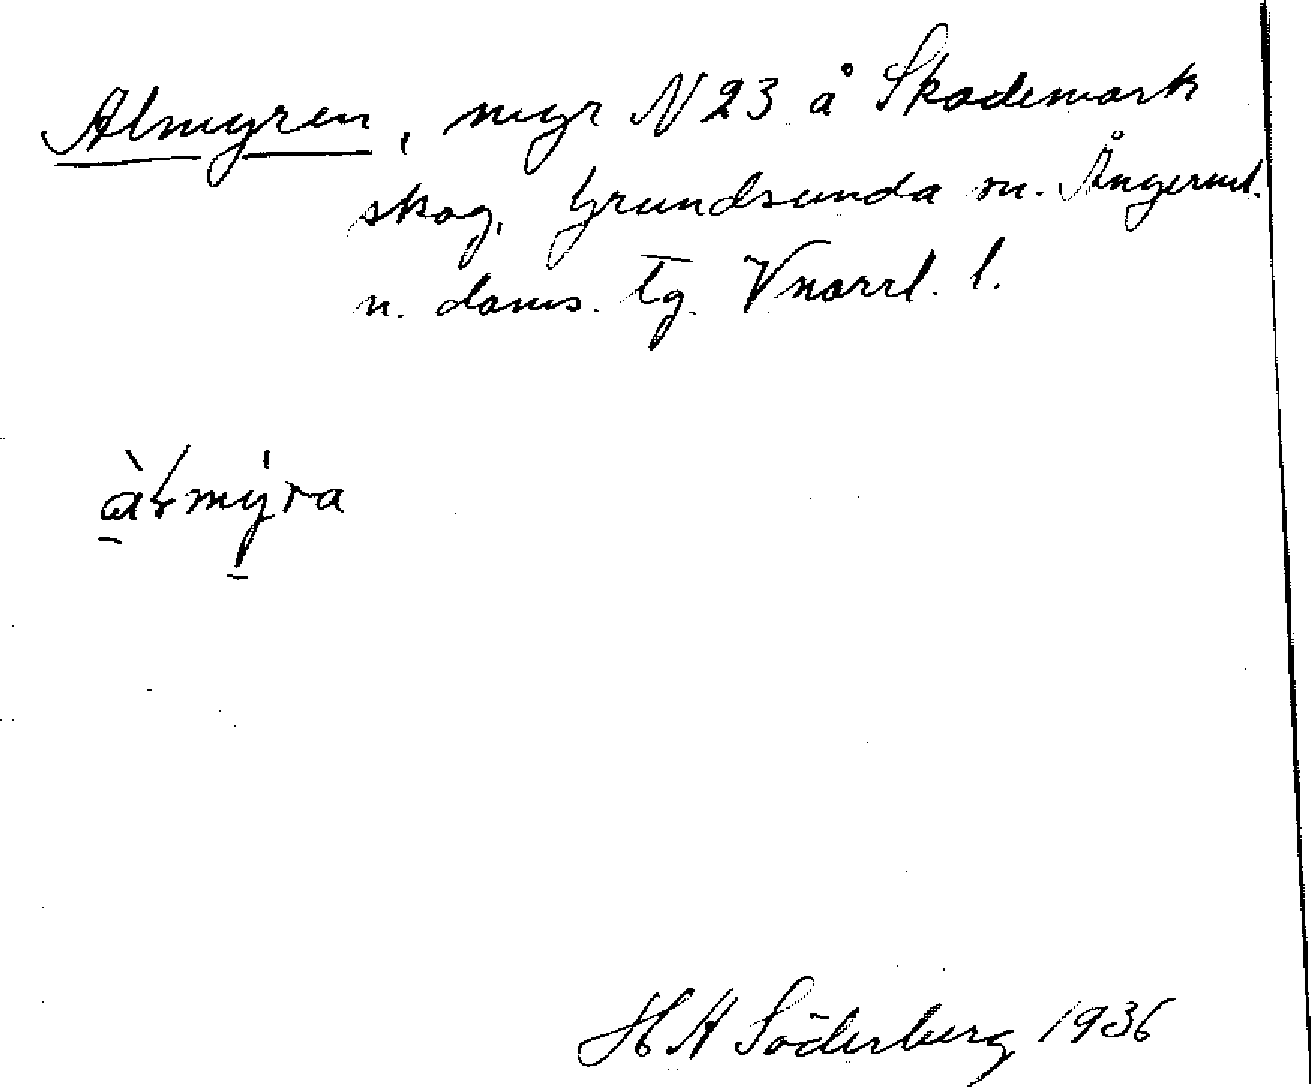 Almyren, myr N 23 å Skademark
skog, Grundsunda sn. Ångerml.
n. doms. tg. Vnorrl. l.
àłmýra
H A Söderberg 1936